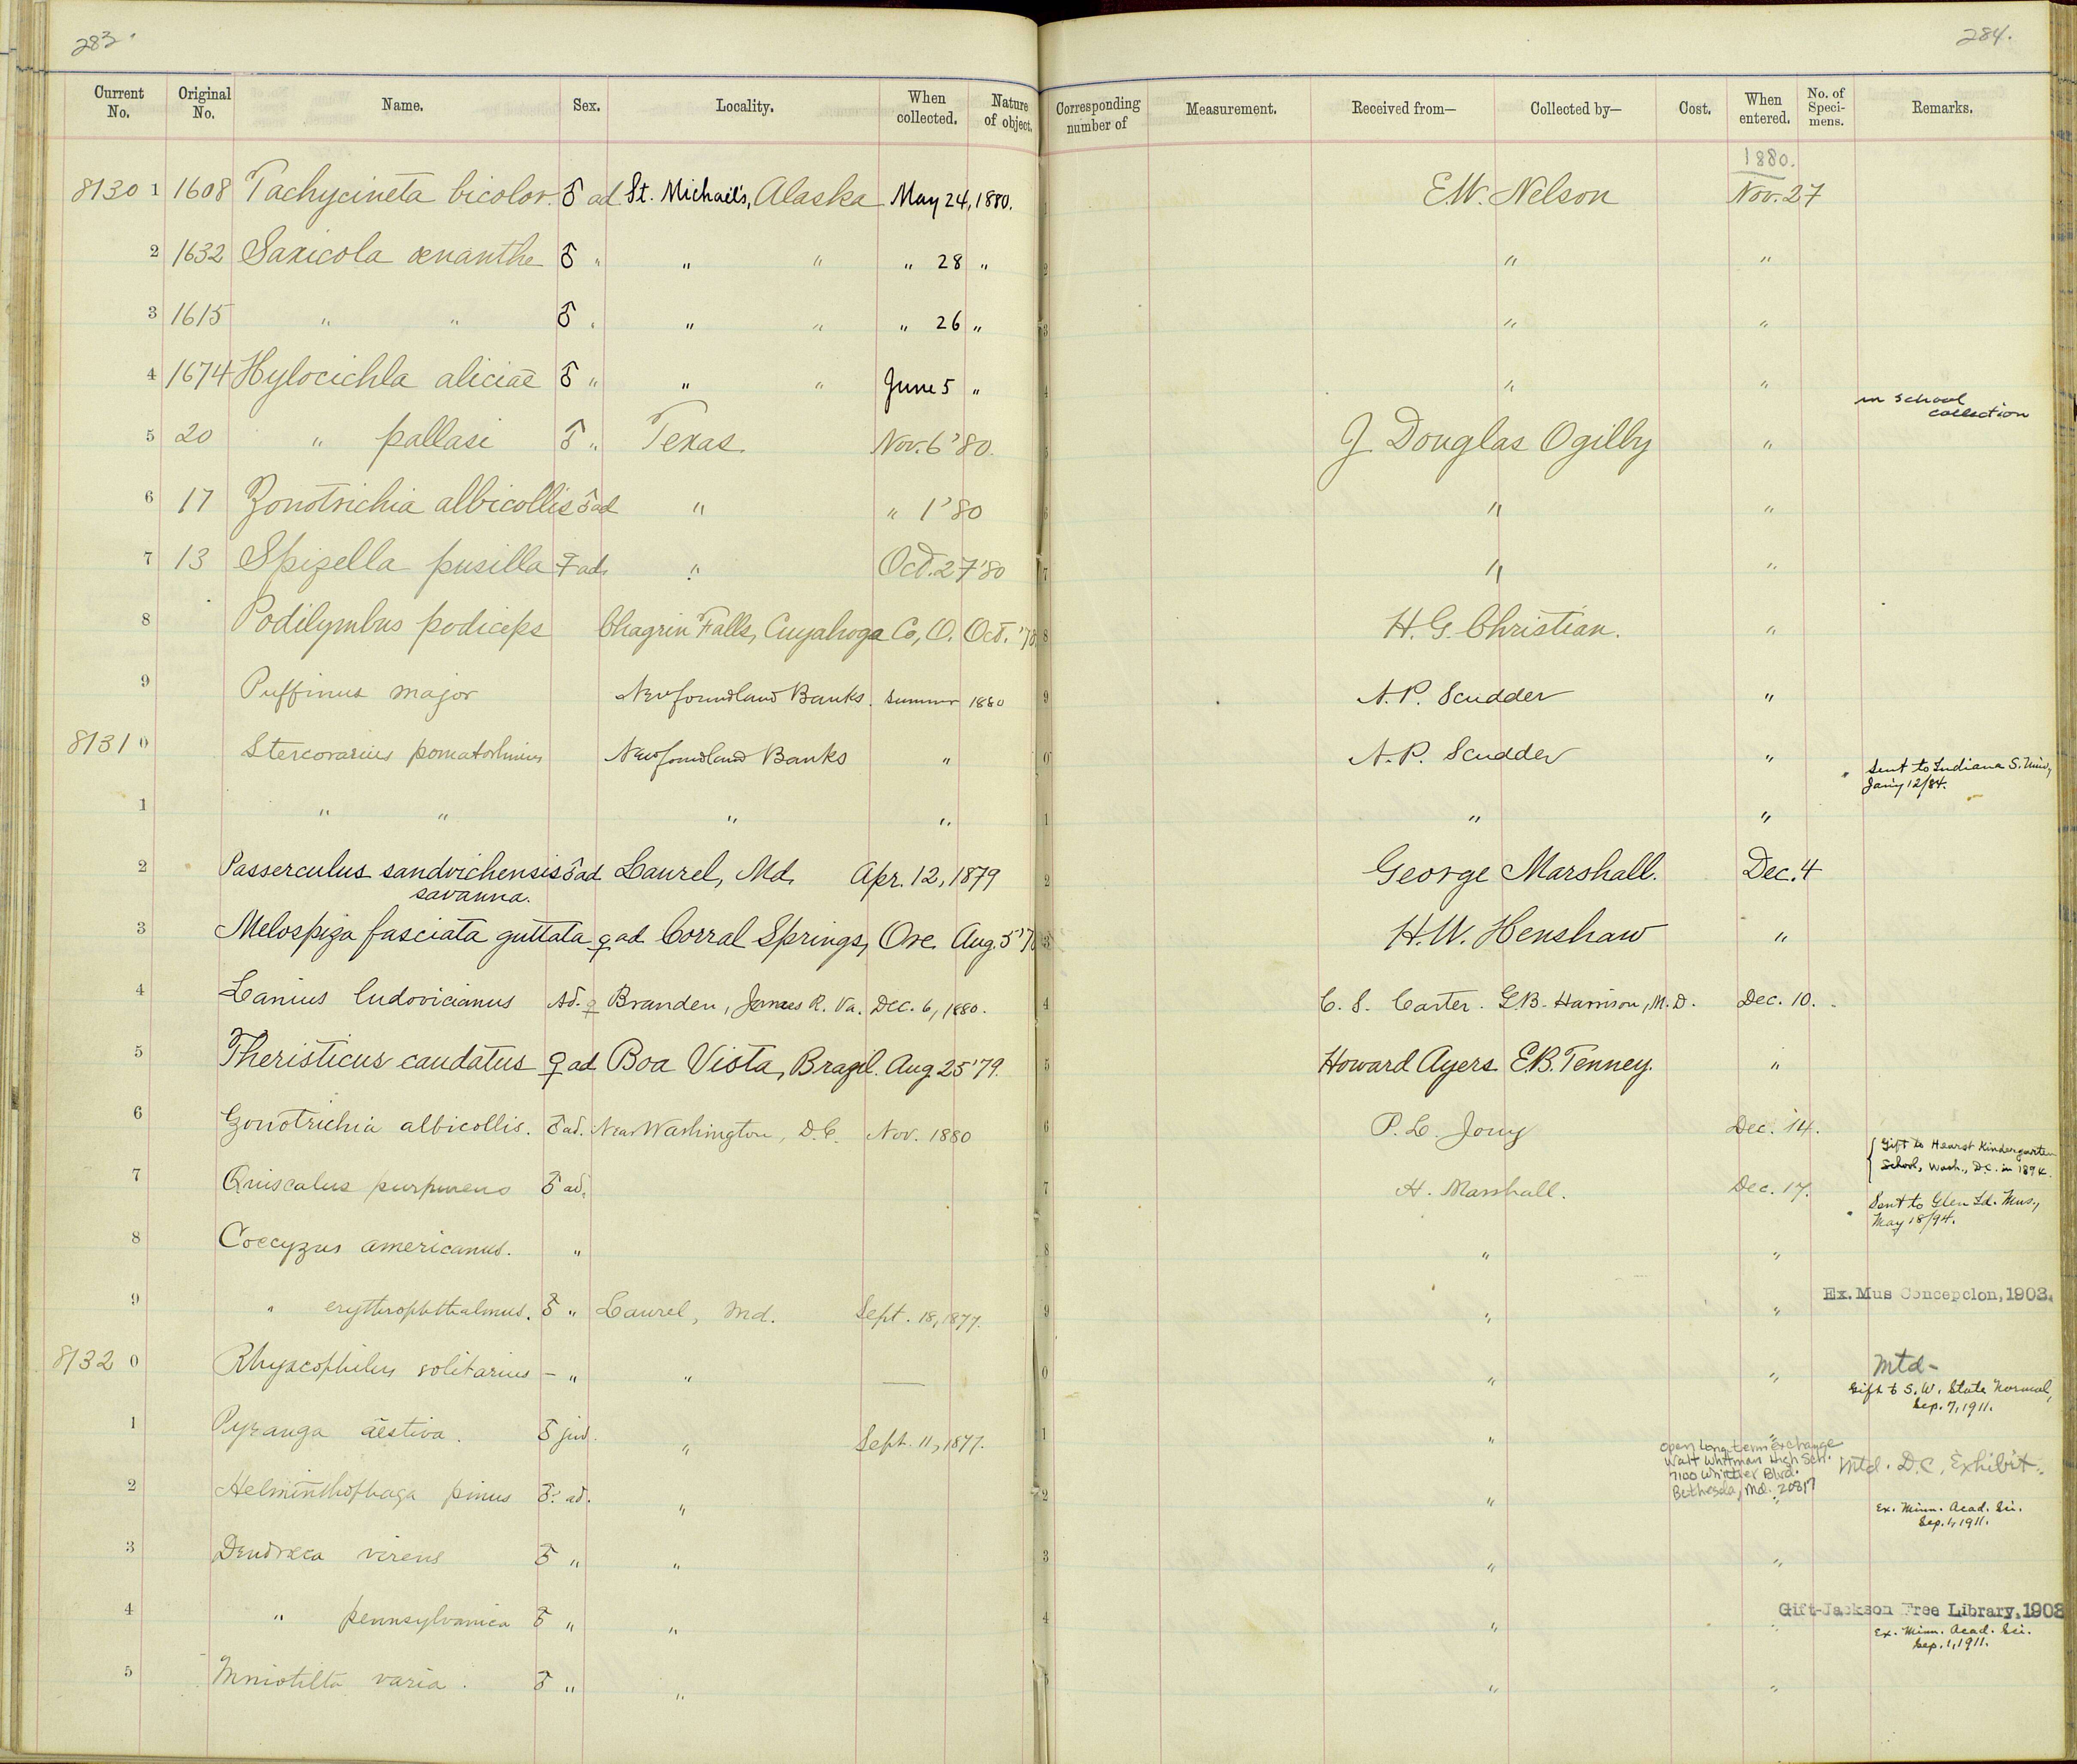 283.
284.
Current No. Original No. Name. Sex. Locality. When collected. Nature of object. Corresponding number of Measurement. Received from— Collected by— Cost. When entered. No. of Speci- mens. Remarks.
1880.
8130 1 1608 Tachycineta bicolor. ♂ ad. St. Michael's, Alaska May 24, 1880. 1 E.W. Nelson Nov. 27
2 1632 Saxicola œnanthe ♂ " " " " 28 " 2 " "
3 1615 " " ♂ " " " " 26 " 3 " "
4 1674 Hylocichla aliciae ♂ " " " June 5 " 4 " "
5 20 " pallasi ♂ " Texas. Nov. 6 '80. 5 J Douglas Ogilby " in school collection
6 17 Zonotrichia albicollis ♂ ad " " 1 '80 6 " "
7 13 Spizella pusilla ♀ ad. " Oct. 27 '80 7 " "
8 Podilymbus podiceps Chagrin Falls, Cuyahoga Co, O. Oct. '78 8 H. G. Christian. "
9 Puffinus major Newfoundland Banks. summer 1880 9 N. P. Scudder "
8131 0 Stercorarius pomatorhinus Newfoundland Banks " 0 N. P. Scudder " Sent to Indiana S. Univ, Jan'y 12/84.
1 " " " " 1 " "
2 Passerculus sandvichensis ♂ ad Laurel, Md. Apr. 12, 1879 2 George Marshall. Dec. 4
savanna.
3 Melospiza fasciata guttata ♀ ad Corral Springs, Ore. Aug. 5 '7 3 H. W. Henshaw "
4 Lanius ludovicianus Ad. ♀ Branden, James R. Va. Dec. 6, 1880. 4 C. S. Carter. G.B. Harrison, M.D. Dec. 10.
5 Theristicus caudatus ♀ ad Boa Vista, Brazil. Aug. 25 '79. 5 Howard Ayers E.B. Tenney. "
6 Zonotrichia albicollis. ♂ ad. Near Washington, D.C. Nov. 1880 6 P. L. Jouy Dec. 14.
Gift to Hearst Kindergarten School, Wash., D.C. in 1894.
7 Quiscalus purpureus ♂ ad. 7 H. Marshall. Dec. 17.
Sent to Glen Id. Mus., May 18/94.
8 Coccyzus americanus. " 8 " "
9 " erythrophthalmus. ♂ " Laurel, Md. Sept. 18, 1877. 9 " " Ex. Mus Concepcion, 1903.
8132 0 Rhyacophilus solitarius — " " — 0 " " Mtd-
Gift to S. W. State Normal, Sep. 7, 1911.
1 Pyranga æstiva. ♂ juv. " Sept. 11, 1877. 1 " "
Open Long term exchange
Walt Whitman High Sch.
7100 Whittier Blvd.
Bethesda, Md. 20817
Mtd. D.C. Exhibit.
2 Helminthophaga pinus ♂ ad. " 2 " "
Ex. Minn. Acad. Sci. Sep. 1, 1911.
3 Dendrœca virens ♂ " " 3 " "
4 " pennsylvanica ♂ " " 4 " " Gift-Jackson Free Library, 1903
Ex. Minn. Acad. Sci. Sep. 1, 1911.
5 Mniotilta varia. ♂ " " 5 " "